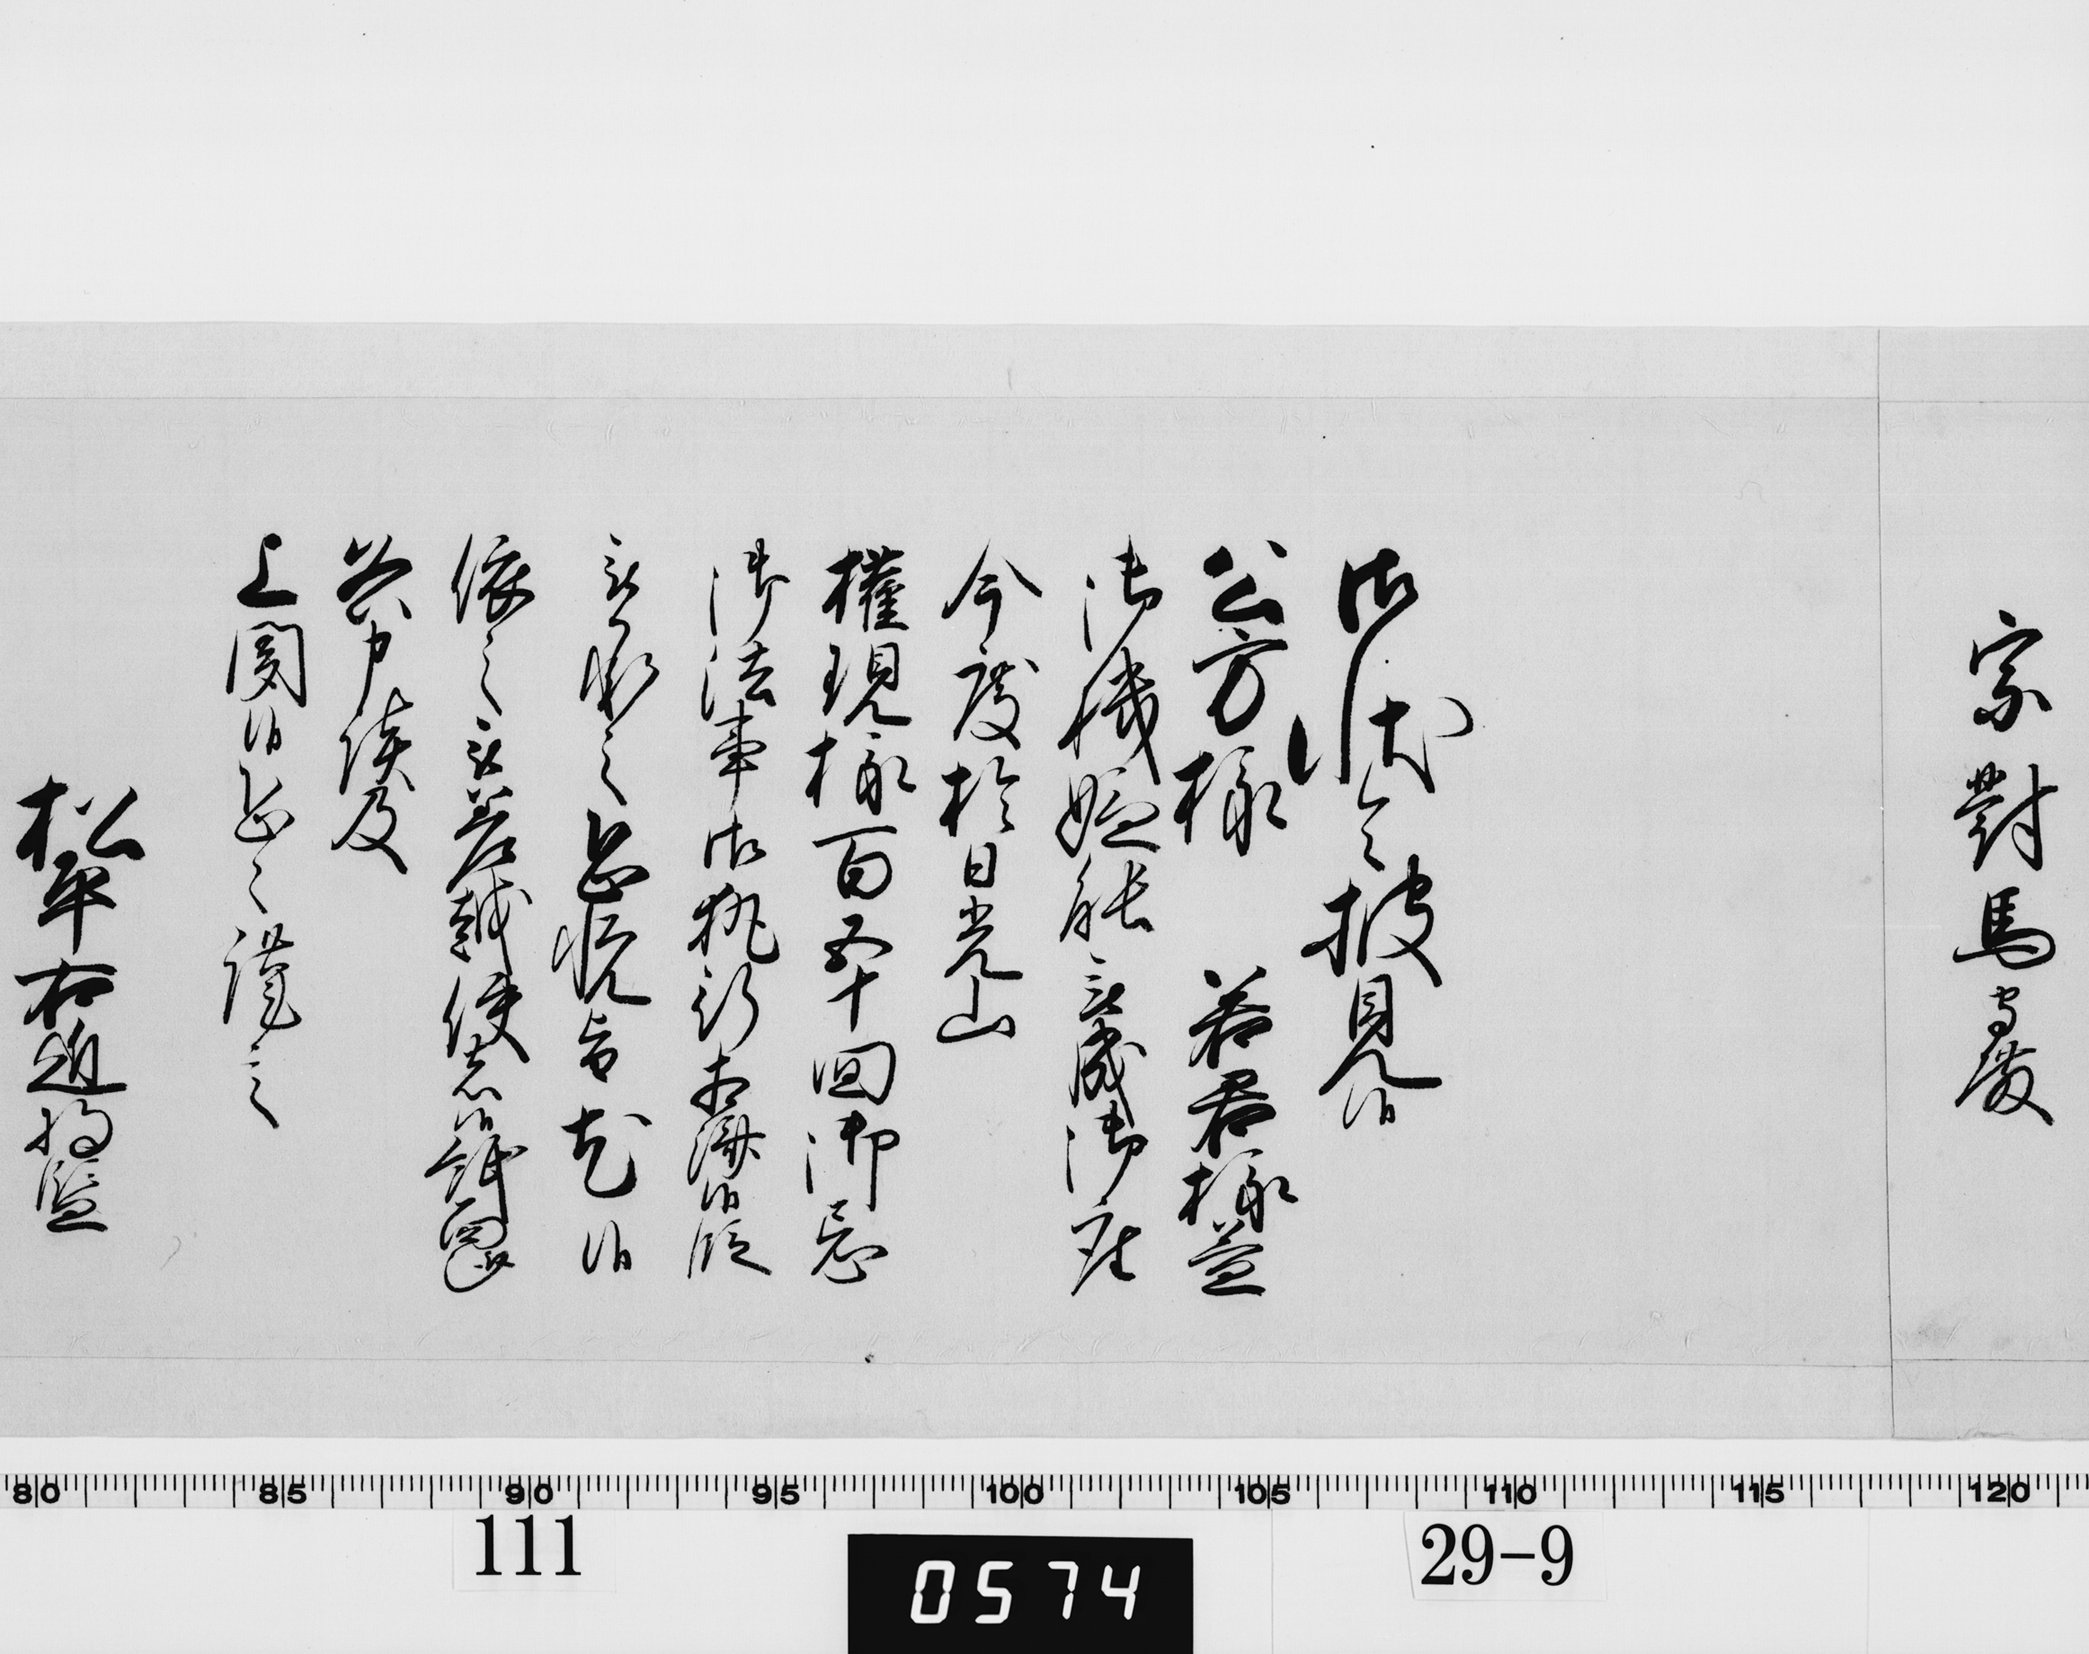 宗對馬守殿
御状令披見候
公方様 若君様益
御機嫌能被成御座
今度於日光山
權現様百五十回御忌
御法事御執行相済候段
被承之恐悦旨尤候
依之被差越使者候
右之趣及
上聞候恐々謹言
松平右近将監
80 85 90 95 100 105 110 115 120
111
0574
29-9